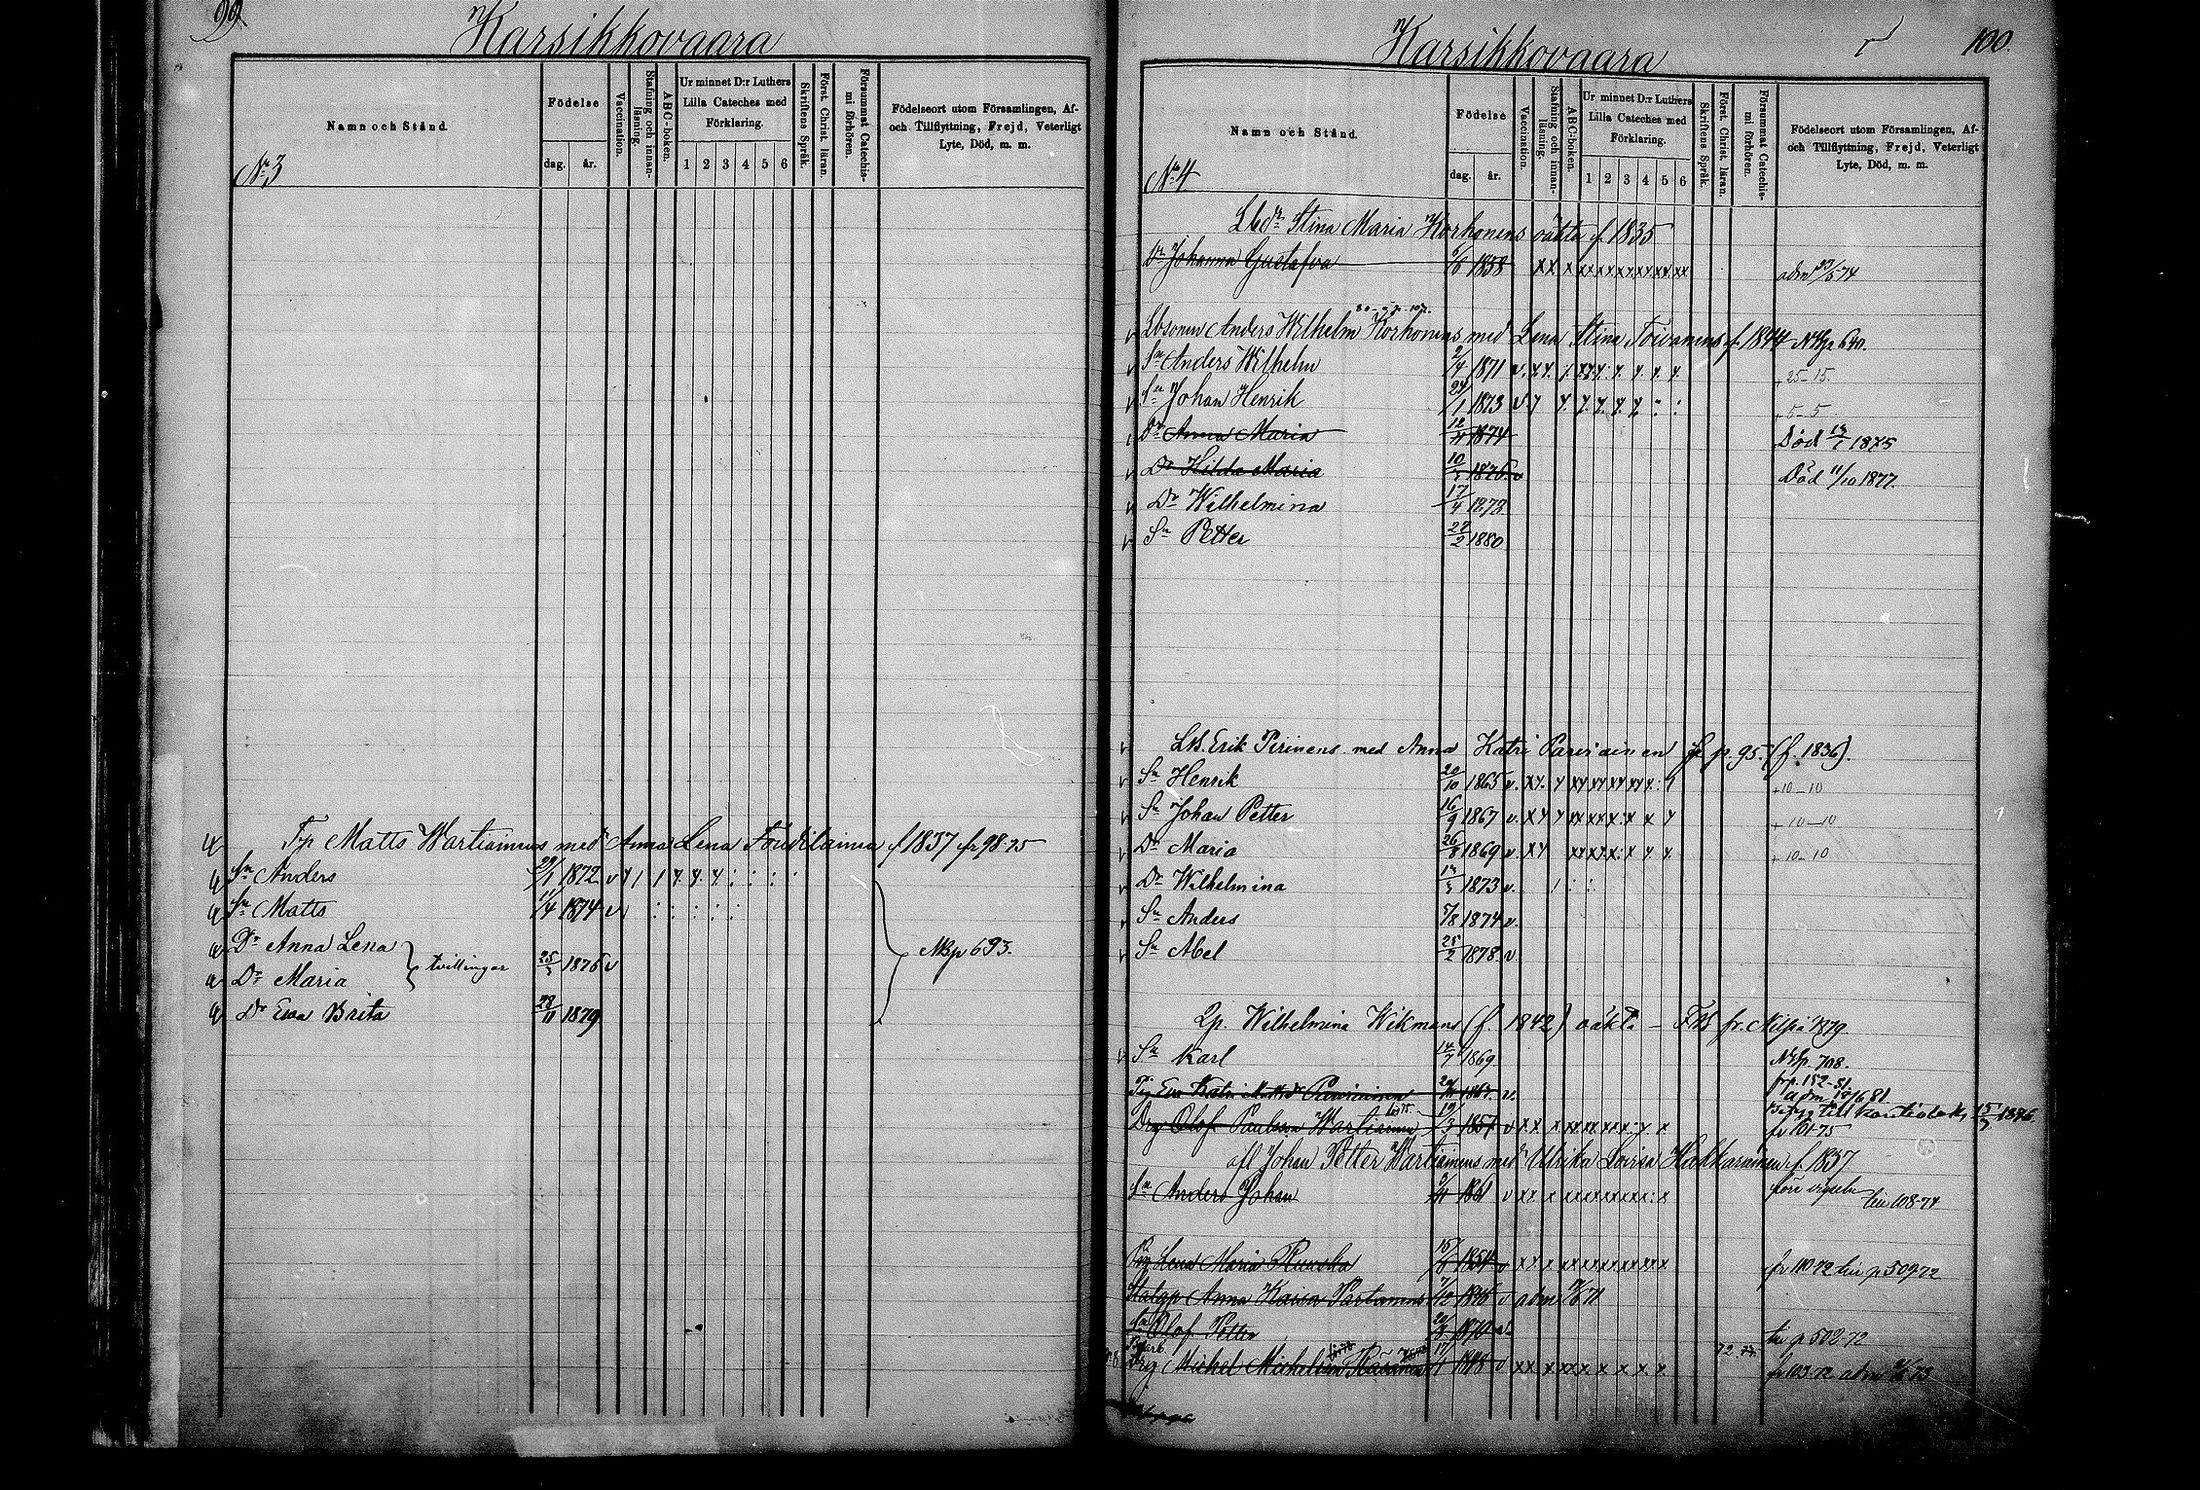 99.
Karsikkovaara
Namn och Stånd.
Födelse
dag. år.
Vaccination.
Stafning och innanläsning.
ABC-boken.
Ur minnet D:r Luthers Lilla Cateches med Förklaring.
1 2 3 4 5 6
Skriftens Språk.
Först. Christ. läran.
Försummat Catechismi förhören.
Födelseort utom Församlingen, Af-
och Tillflyttning, Frejd, Veterligt
Lyte, Död, m. m.
N:o 3
Tp Matts Wartiainens med Anna Lena f 1837 fr 98-75
Sn Anders 29/1 1872 v
Sn Matts 11/4 1874 v
Dr Anna Lena
tvillingar 25/3 1876 v
Dr Maria
Nkp 693.
Dr Ewa Brita 28/11 1879
Karsikkovaara
100.
Namn och Stånd.
Födelse
dag. år.
Vaccination.
Stafning och innanläsning.
ABC-boken.
Ur minnet D:r Luthers Lilla Cateches med Förklaring.
1 2 3 4 5 6
Skriftens Språk.
Först. Christ. läran.
Försummat Catechismi förhören.
Födelseort utom Församlingen, Af-
och Tillflyttning, Frejd, Veterligt
Lyte, Död, m. m.
N:o 4
Lbdr Stina Maria Korhonens oäkta f. 1835
Dr Johanna Gustafva 1858 adm 27/6 74
Lbsonen Anders Wilhelm Korhonens med Lena Stina Toivanens f. 1844 Nkp 640.
Sn Anders Wilhelm 2/4 1871 v. +25-15.
Sn Johan Henrik 24/1 1873 v +5-5
Dr Anna Maria 12/11 1874 Död 13/1 1875
Dr Hilda Maria 10/3 1876 v Död 11/10 1877.
Dr Wilhelmina 17/4 1878.
Sn Petter 22/2 1880
Lb. Erik Pirinens med Anna Katri Parviainen fr p. 95. (f. 1836).
Sn Henrik 20/10 1865 v. +10-10
Sn Johan Petter 16/9 1867 v. +10-10
Dr Maria 26/8 1869 v. +10-10
Dr Wilhelmina 1873 v.
Sn Anders 5/8 1874 v.
Sn Abel 25/2 1878 v
Wilhelmina Wikmans (f. 1842) oäkta - fr. Nilsiä 1879
Sn Karl 14/7 1869. Nkp. 708.
Pig Eva Katri v. frp. 152-81.
Drg Olof Paulsson Wartiainen 19/3 1857 v fr 101-75
afl Johan Petter Wartiainens med Ulrika Lovisa Hakkarainen f. 1837
Sn Anders Johan 1861 v till 108-74
Pig Lena Maria Ruuska 1854 v fr 110-72 till p 509-72
Anna Kaisa Partanens v adm 71
Sn Olof Petter 1870 till p 502-72
Drg Michel Michelsson Räsänen 1848 v fr 103-72